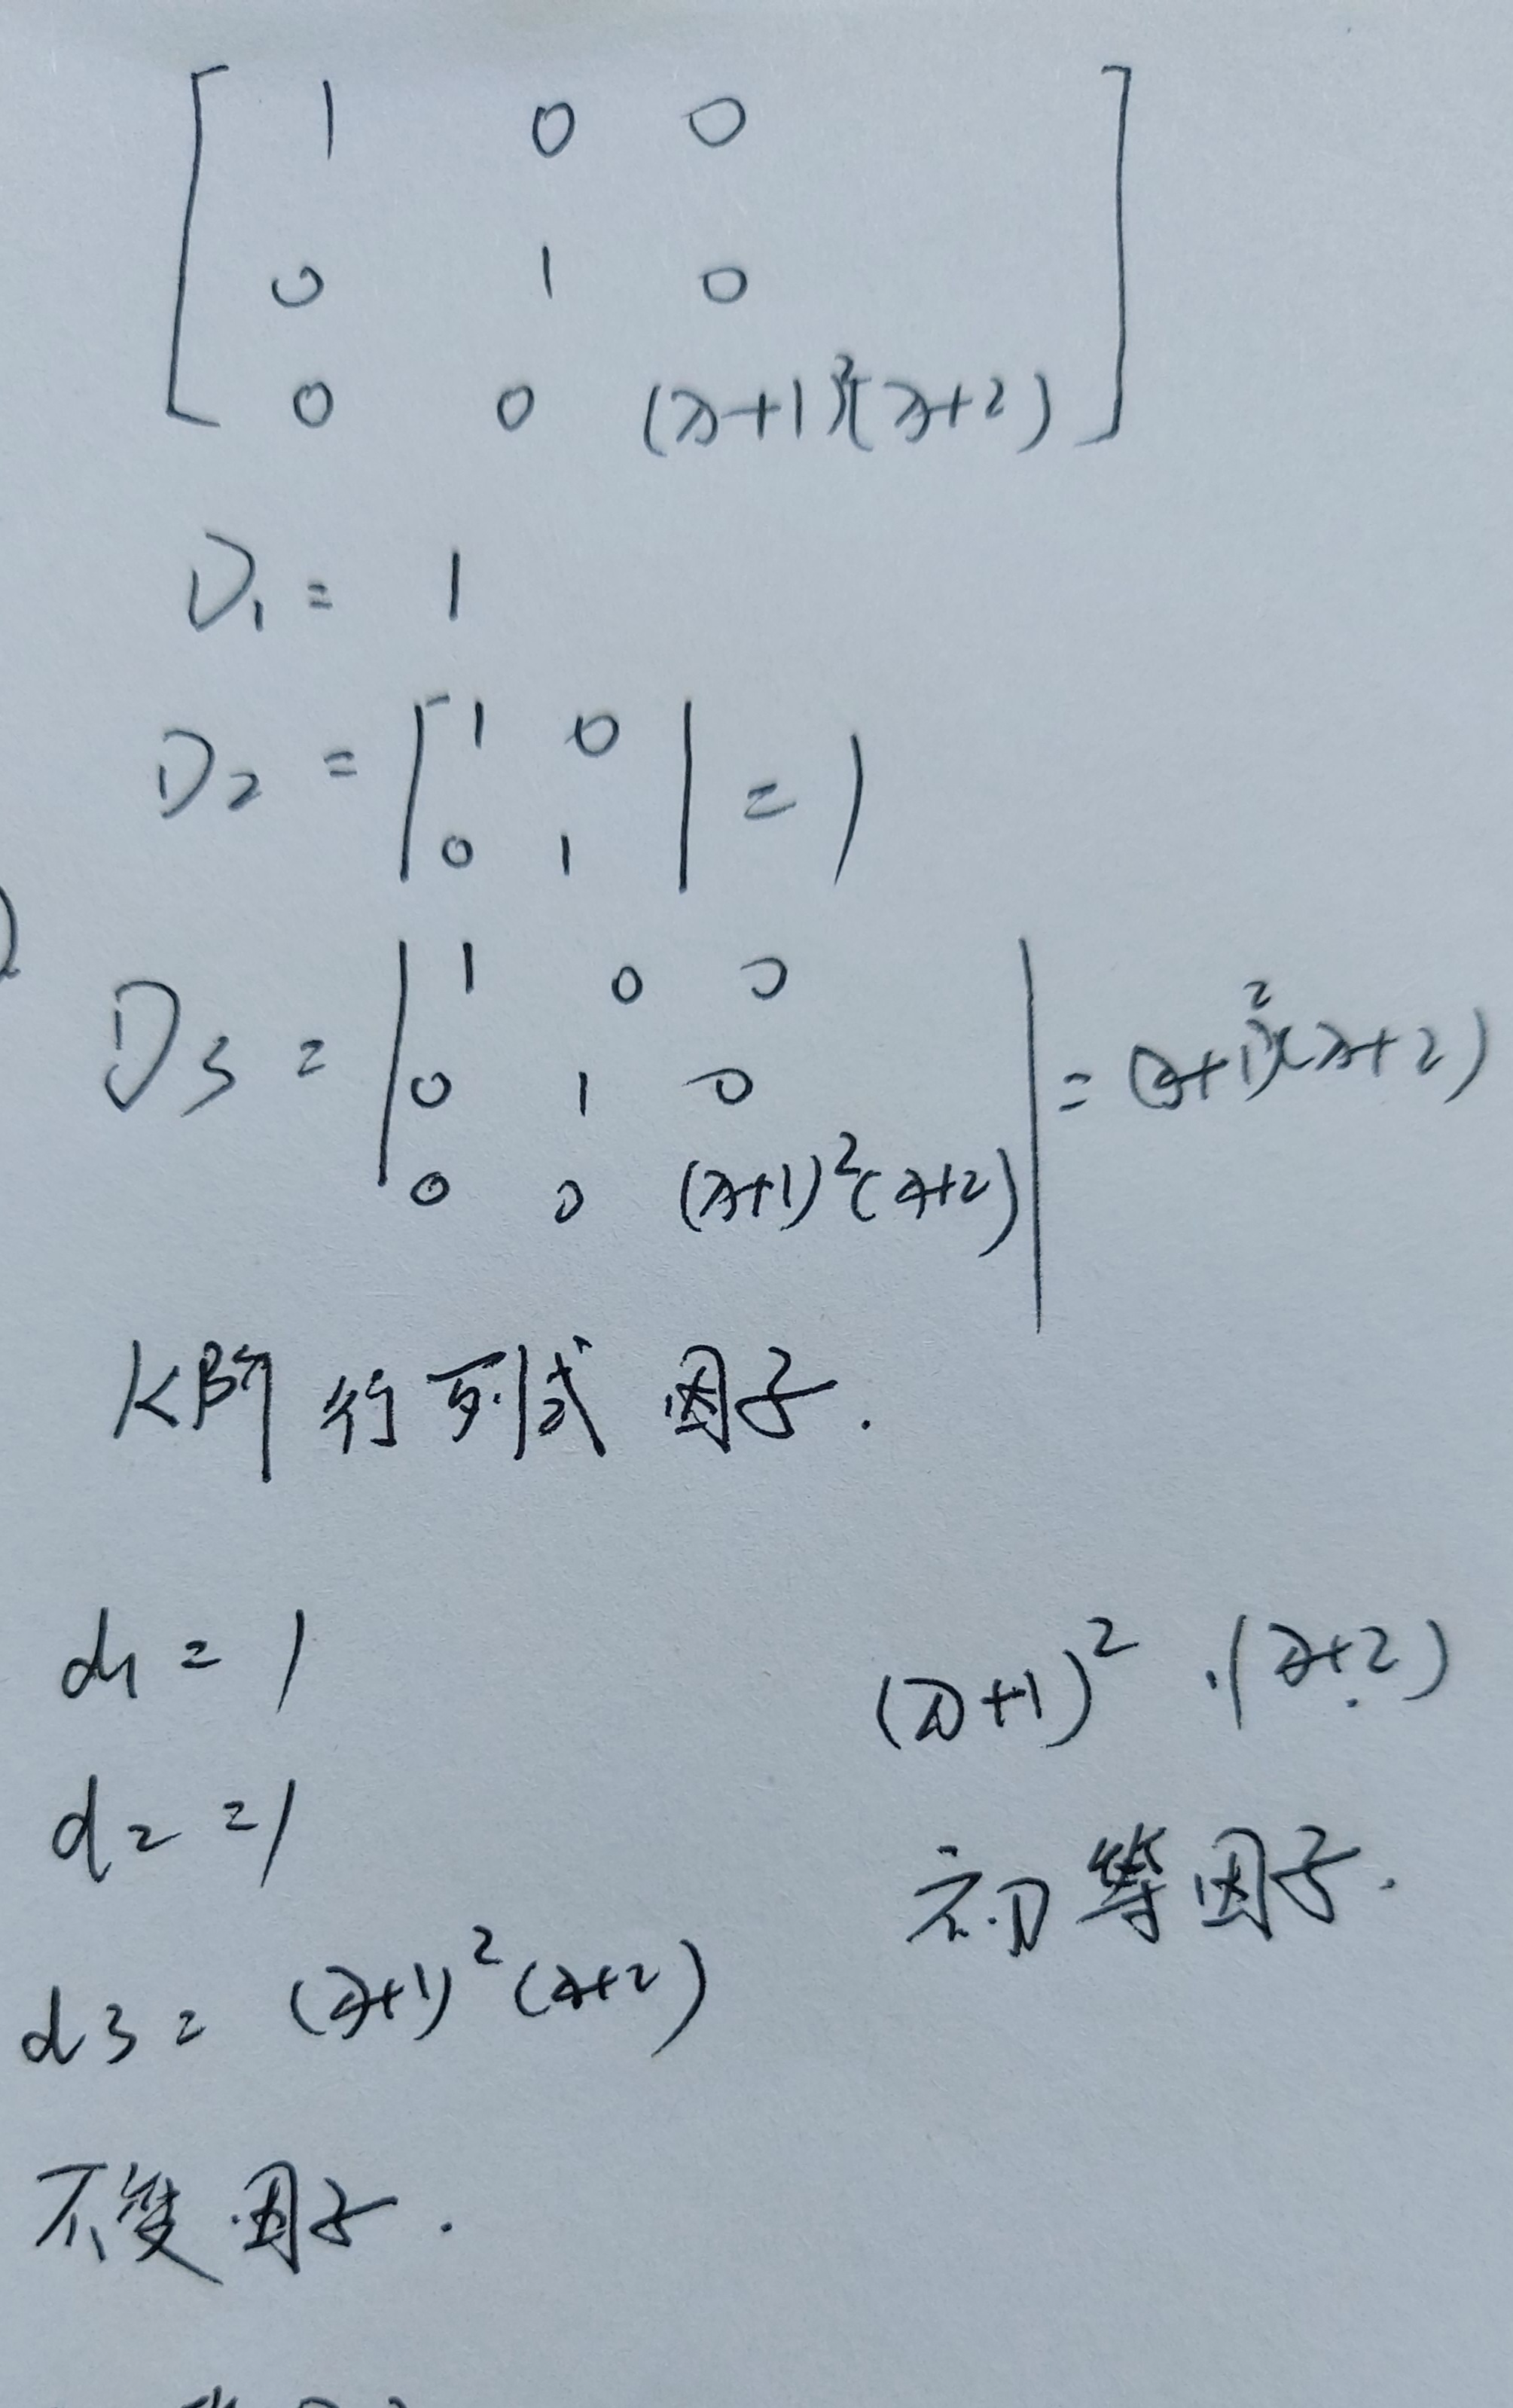 1 0 0
0 1 0
0 0 (λ+1)²(λ+2)
D₁ = 1
D₂ = | 1 0
0 1 | = 1
D₃ = | 1 0 0
0 1 0
0 0 (λ+1)²(λ+2) | = (λ+1)²(λ+2)
K阶 行列式 因子.
d₁ = 1
(λ+1)² . (λ+2)
d₂ = 1
初等因子.
d₃ = (λ+1)²(λ+2)
不变因子.